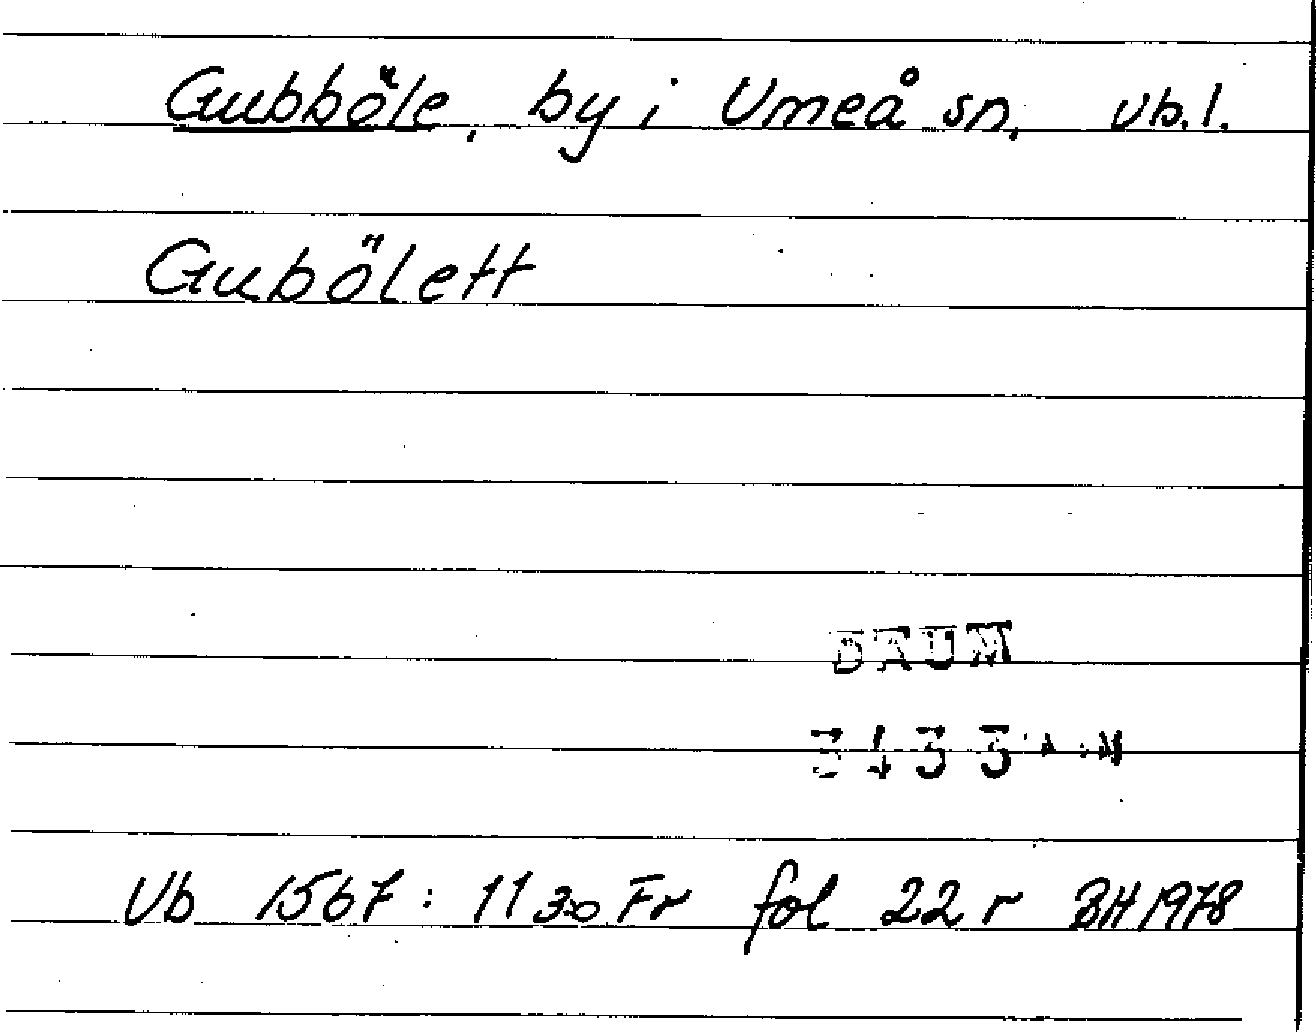 Gubböle, by i Umeå sn, Vb. l.
Gubölett
DAUM
Vb 1567: 11 30 Fr fol 22 r BH 1978